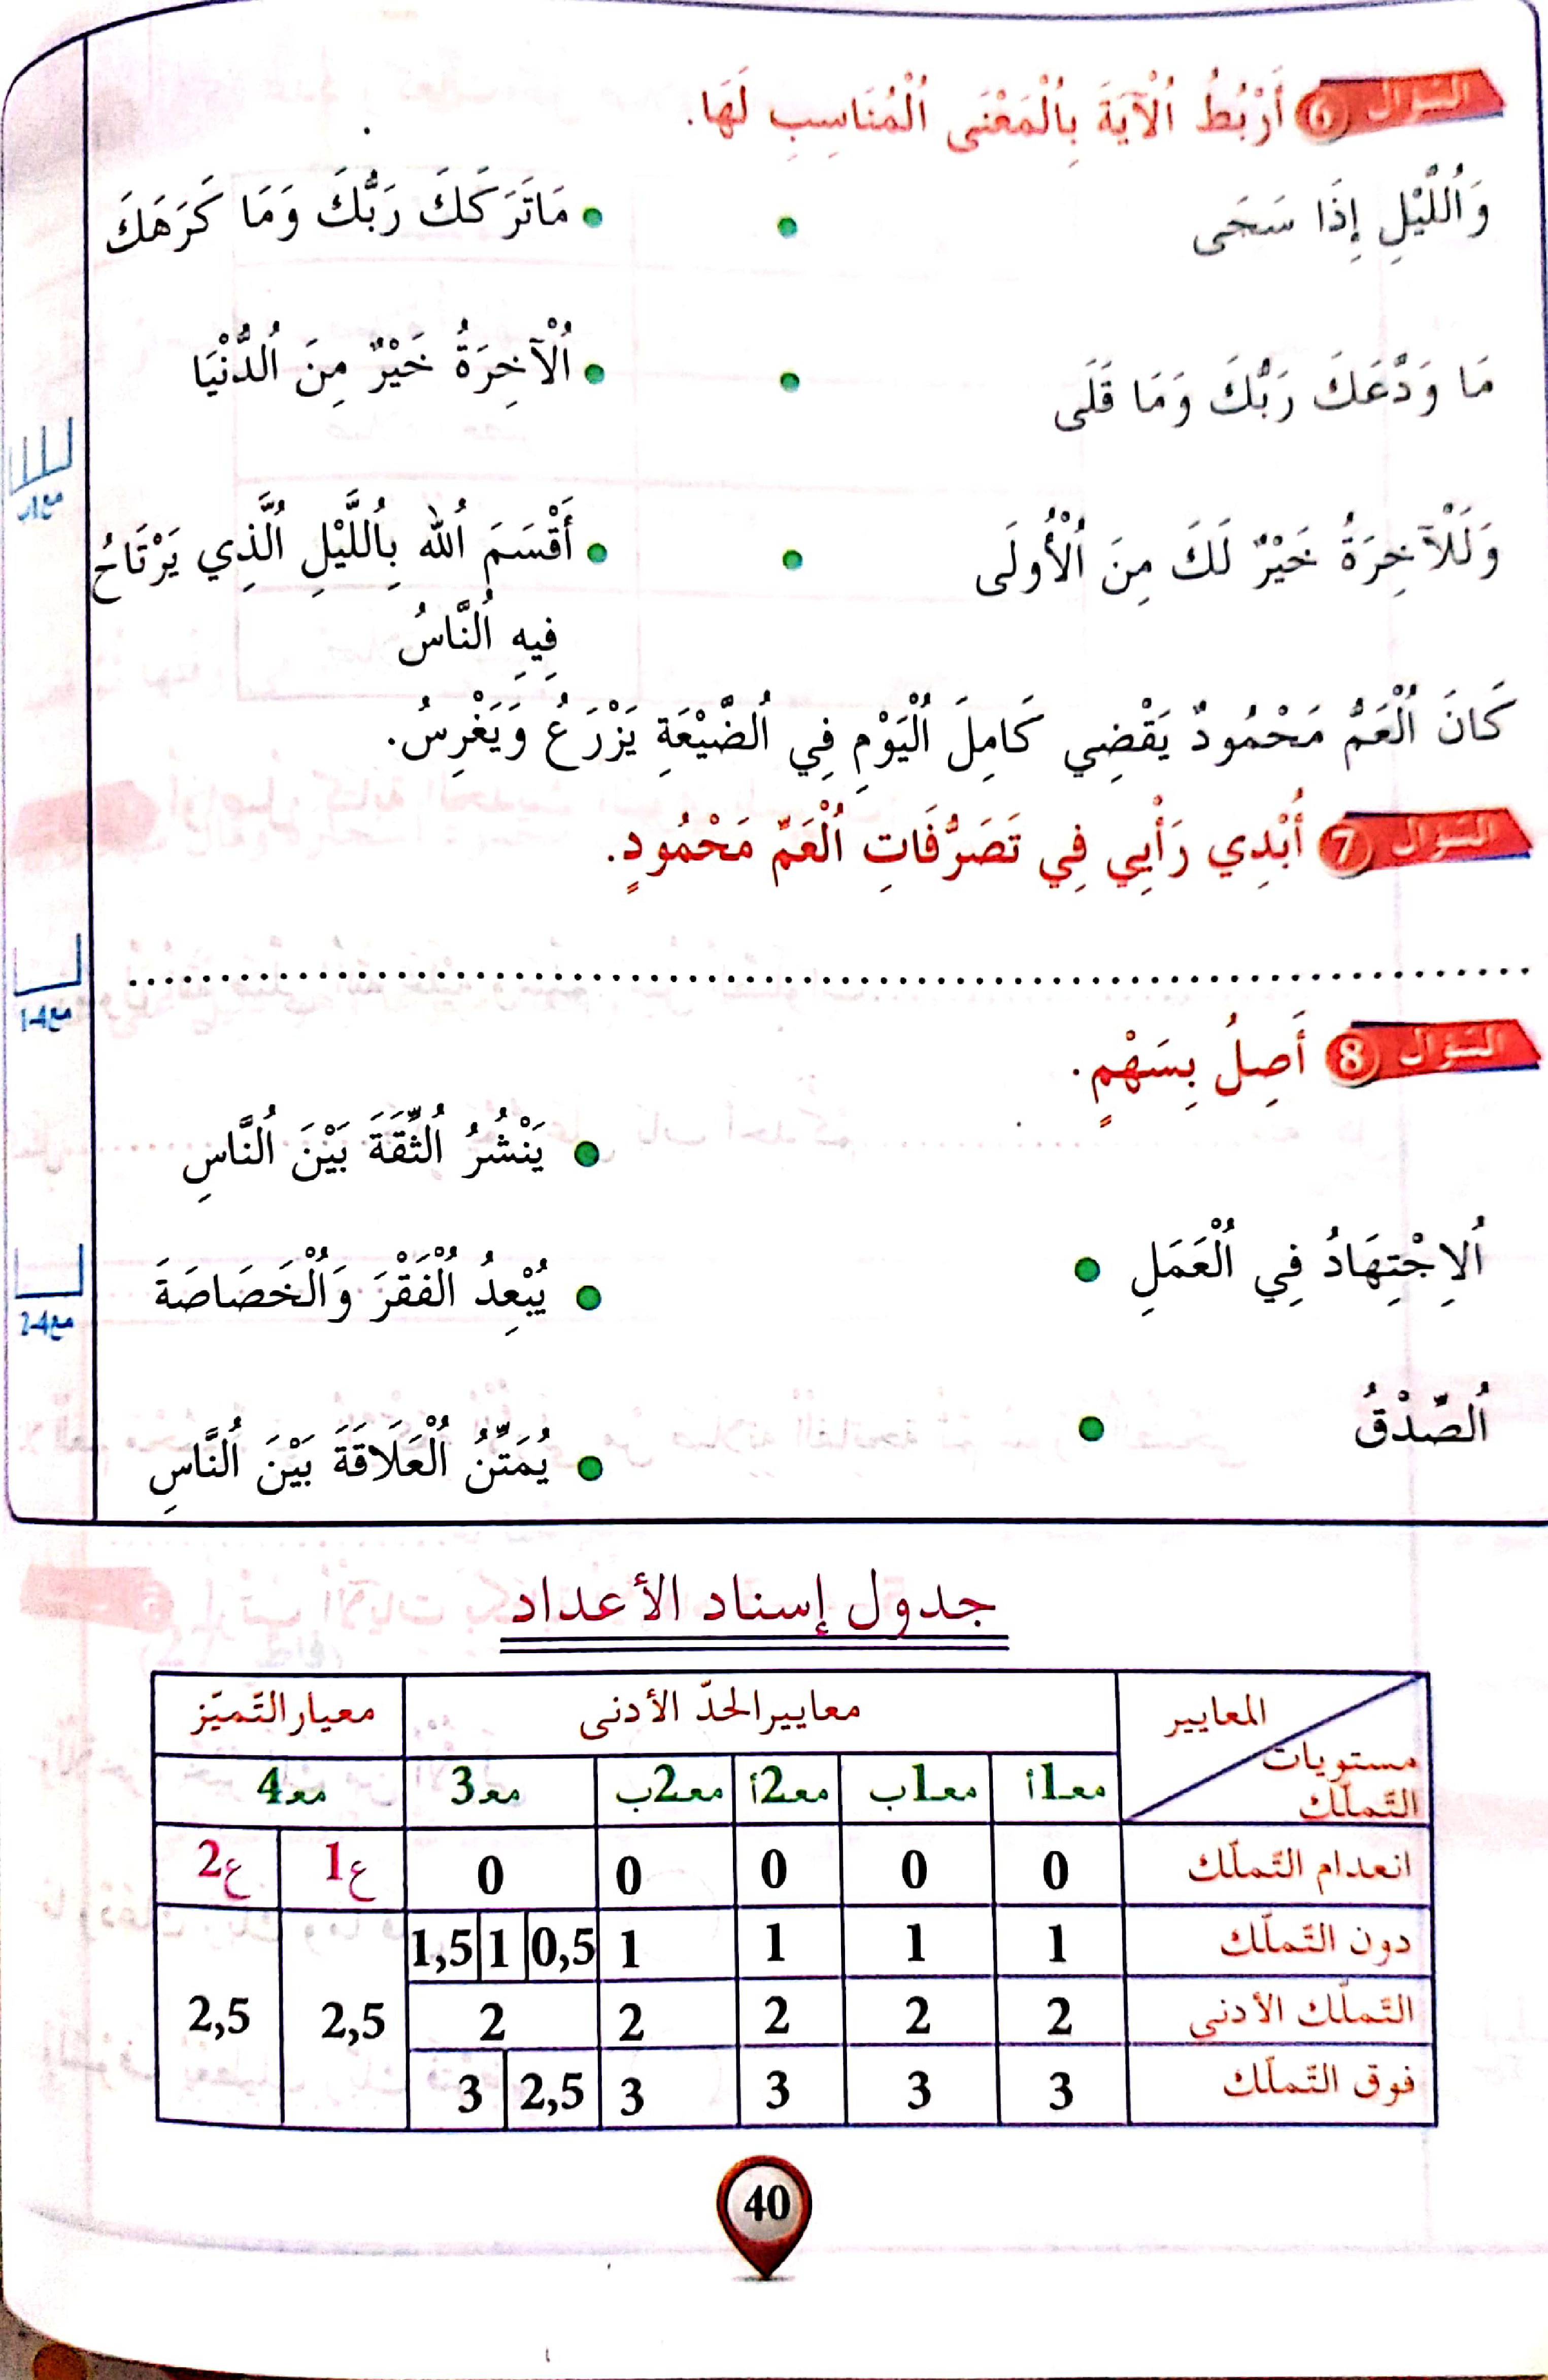 السّؤال 6 أَرْبُطُ ٱلْآيَةَ بِٱلْمَعْنَى ٱلْمُنَاسِبِ لَهَا.
وَٱللَّيْلِ إِذَا سَجَى • • مَاتَرَكَكَ رَبُّكَ وَمَا كَرَهَكَ
مَا وَدَّعَكَ رَبُّكَ وَمَا قَلَى • • ٱلْآخِرَةُ خَيْرٌ مِنَ ٱلدُّنْيَا
وَلَلْآخِرَةُ خَيْرٌ لَكَ مِنَ ٱلْأُولَى • • أَقْسَمَ ٱلله بِٱللَّيْلِ ٱلَّذِي يَرْتَاحُ
فِيهِ ٱلنَّاسُ
مع1ب
كَانَ ٱلْعَمُّ مَحْمُودٌ يَقْضِي كَامِلَ ٱلْيَوْمِ فِي ٱلضَّيْعَةِ يَزْرَعُ وَيَغْرِسُ.
السّؤال 7 أُبْدِي رَأْيِي فِي تَصَرُّفَاتِ ٱلْعَمِّ مَحْمُودٍ.
مع4-1
السّؤال 8 أَصِلُ بِسَهْمٍ.
• يَنْشُرُ ٱلثِّقَةَ بَيْنَ ٱلنَّاسِ
ٱلِاجْتِهَادُ فِي ٱلْعَمَلِ • • يُبْعِدُ ٱلْفَقْرَ وَٱلْخَصَاصَةَ
مع4-2
ٱلصِّدْقُ • • يُمَتِّنُ ٱلْعَلَاقَةَ بَيْنَ ٱلنَّاسِ
جدول إسناد الأعداد
المعايير معايير الحدّ الأدنى معيار التّميّز
مستويات التّملّك مع1أ مع1ب مع2أ مع2ب مع3 مع4
انعدام التّملّك 0 0 0 0 0 ع1 ع2
دون التّملّك 1 1 1 1 0,5 1 1,5
التّملّك الأدنى 2 2 2 2 2 2,5 2,5
فوق التّملّك 3 3 3 3 2,5 3
40